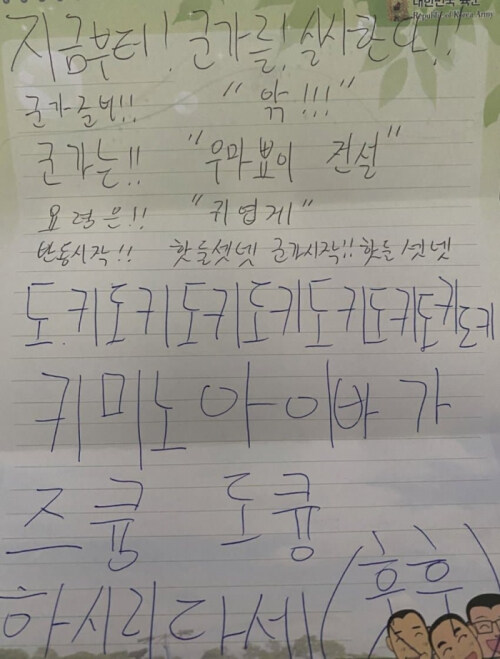 대한민국 육군
Republic of Korea Army
지금부터! 군가를! 실시한다!!
군가준비!! "악!!!"
군가는!! "우마뾰이 전설"
요령은!! "귀엽게"
반동시작!! 핫둘셋넷 군가시작!! 핫둘셋넷
도키도키도키도키도키도키도키도키
키미노아이바가
즈큥 도큥
하시리다세 (후후)